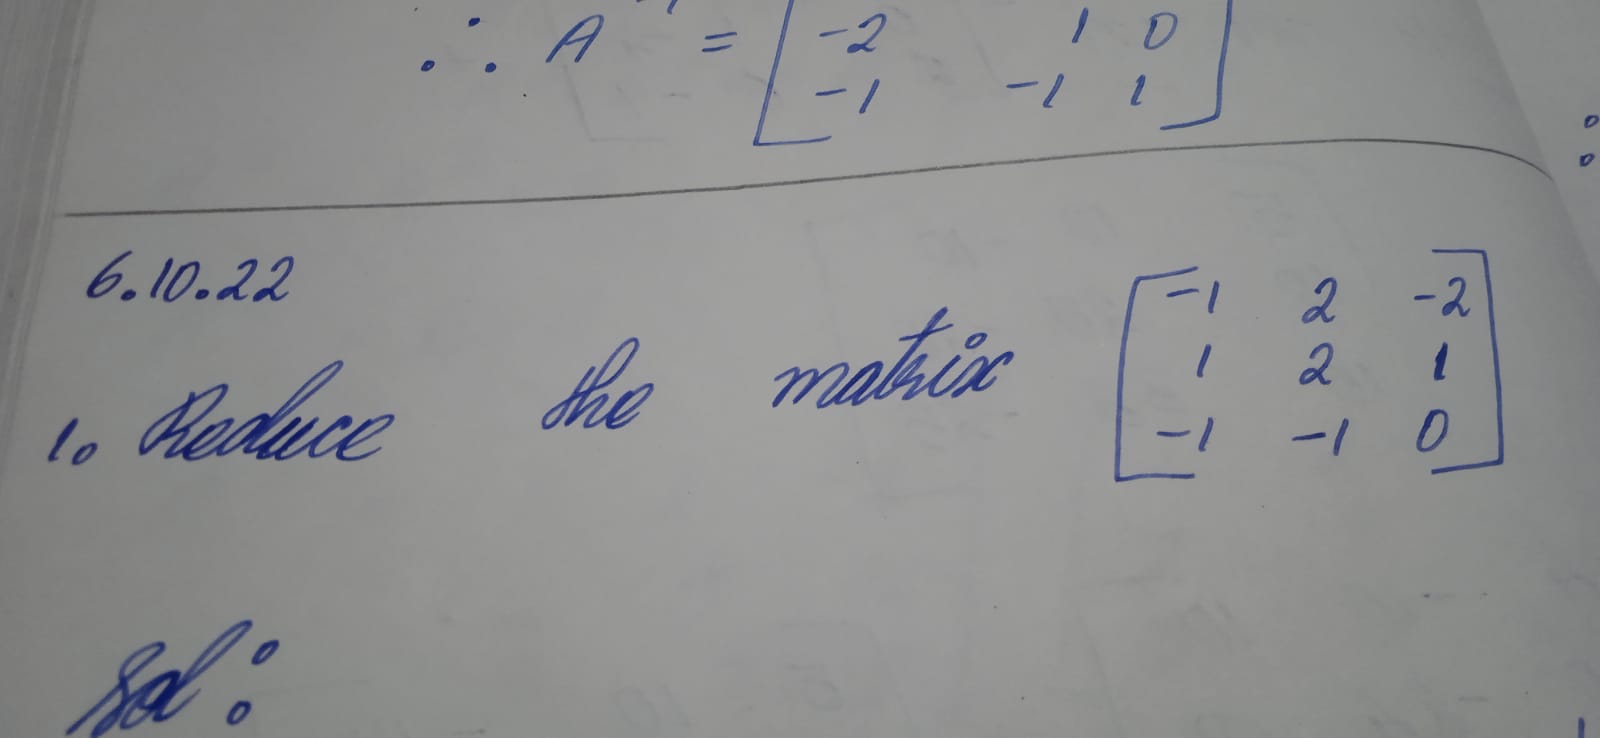 ∴ A = [ -2 1 0
-1 -1 1 ]
6.10.22
1. Reduce the matrix [ -1 2 -2
1 2 1
-1 -1 0 ]
Sol: